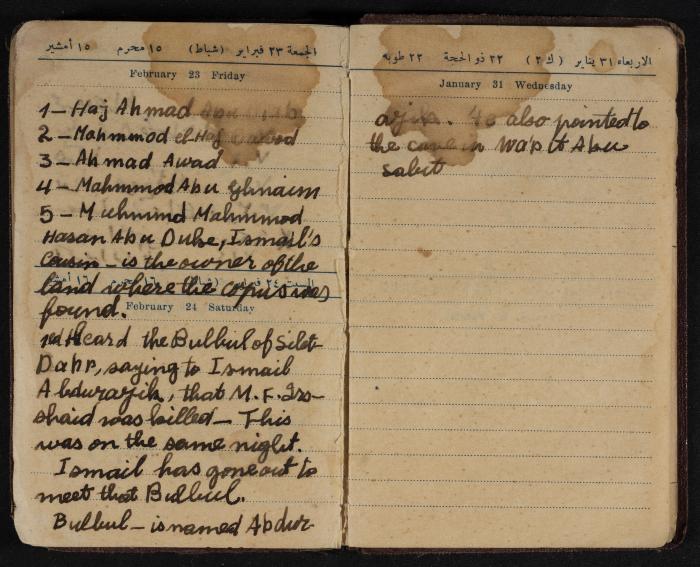 الجمعة ٢٣ فبراير (شباط) ١٥ محرم ١٥ أمشير
February 23 Friday
1 - Haj Ahmad
2 - Mahmmod el Haj
3 - Ahmad Awad
4 - Mahmmod Abu Ghnaim
5 - Muhmmd Mahmmod
Hasan Abu Duhe, Ismail's
Cousin - is the owner of the
land where the copus was
found.
February 24 Saturday
Heard the Bulbul of Silet
Dahr, saying to Ismail
Abdurazik, that M. F. Irs-
shaid was killed - This
was on the same night.
Ismail has gone out to
meet that Bulbul.
Bulbul - is named Abdur-
الاربعاء ٣١ يناير (ك ٢) ٢٢ ذو الحجة ٢٢ طوبه
January 31 Wednesday
azik. also pointed to
the cave in Abu
salut